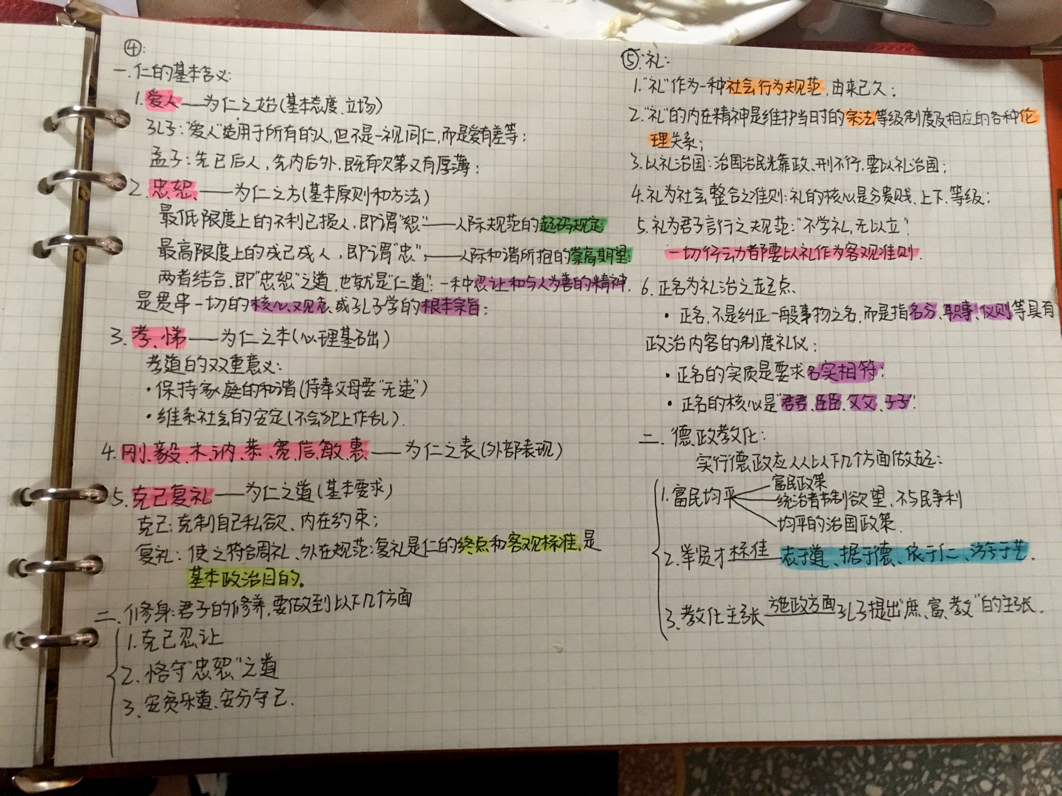 ④:
一.仁的基本含义:
1.爱人——为仁之始(基本态度、立场)
孔子:"爱人"适用于所有的人,但不是一视同仁,而是爱有差等;
孟子:先己后人,先内后外,既有次第又有厚薄;
2.忠恕——为仁之方(基本原则和方法)
最低限度上的不利己损人,即谓"恕"——人际规范的起码规定
最高限度上的成己成人,即谓"忠",——人际和谐所抱的崇高期望;
两者结合,即"忠恕"之道,也就是"仁道":一种忍让和与人为善的精神.
是贯串一切的核心观念,或孔子学的根本宗旨;
3.孝、悌——为仁之本(心理基础)
孝道的双重意义:
·保持家庭的和谐(侍奉父母要"无违")
·维系社会的安定(不会犯上作乱).
4.刚、毅、木、讷、恭、宽、信、敏、惠——为仁之表(外部表现)
5.克己复礼——为仁之道(基本要求)
克己:克制自己私欲、内在约束;
复礼:使之符合周礼、外在规范;复礼是仁的终点和客观标准,是
基本政治目的。
二、修身:君子的修养,要做到以下几个方面
1.克己忍让
2.恪守"忠恕"之道
3.安贫乐道、安分守己.
⑤:礼:
1."礼"作为一种社会行为规范,由来已久;
2."礼"的内在精神是维护当时的宗法等级制度及相应的各种伦
理关系;
3.以礼治国:治国治民光靠政、刑不行,要以礼治国;
4.礼为社会整合之准则:礼的核心是分贵贱、上下、等级;
5.礼为君子言行之规范:"不学礼,无以立"
一切行动都要以礼作为客观准则.
6.正名为礼治之起点.
·正名,不是纠正一般事物之名,而是指名分、职事、仪则等具有
政治内容的制度礼仪;
·正名的实质是要求名实相符;
·正名的核心是"君君、臣臣、父父、子子".
二、德政教化:
实行德政应从以下几个方面做起:
1.富民均平
富民政策
统治者节制欲望、不与民争利
均平的治国政策.
2.举贤才 标准——志于道、据于德、依于仁、游于艺.
3.教化主张 施政方面 孔子提出"庶、富、教"的主张.